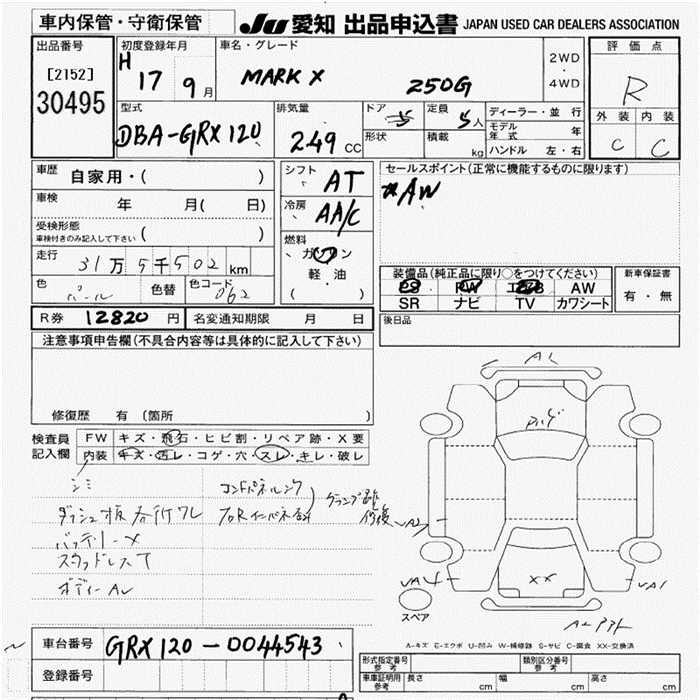 車内保管・守衛保管
JU 愛知 出品申込書 JAPAN USED CAR DEALERS ASSOCIATION
出品番号
[2152]
30495
初度登録年月
H 17 9月
車名・グレード
MARK X 250G
2WD
・
4WD
評価点
R
外装 内装
C C
型式
DBA-GRX120
排気量
249 CC
ドア 5
形状
定員 5人
積載 kg
ディーラー・並行
モデル年式 年
ハンドル 左・右
車歴 自家用・( )
車検 年 月( 日)
受検形態
車検付きのみ記入して下さい ( )
走行 31万5千502km
色 パール 色替 色コード 062
シフト AT
冷房 AA/C
燃料
ガソリン
軽・油
( )
セールスポイント(正常に機能するものに限ります)
*AW
装備品(純正品に限り○をつけてください)
PS PW エアB AW
SR ナビ TV カワシート
新車保証書
有・無
R券 12820円 名変通知期限 月 日
後日品
注意事項申告欄(不具合内容等は具体的に記入して下さい)
修復歴 有(箇所 )
検査員
記入欄
FW キズ・飛石・ヒビ割・リペア跡・X要
内装 キズ・汚レ・コゲ・穴・スレ・キレ・破レ
シミ
ダッシュ板各所ワレ
バッテリーX
スタッドレスT
ボディーAU
AL
XX
VA4
VA1
スペア
車台番号 GRX120-0044543
登録番号
A-キズ E-エクボ U-凹み W-補修跡 S-サビ C-腐食 XX-交換済
形式指定番号
参考
類別区分番号
参考
車庫証明用
参考
長さ cm 幅 cm 高さ cm